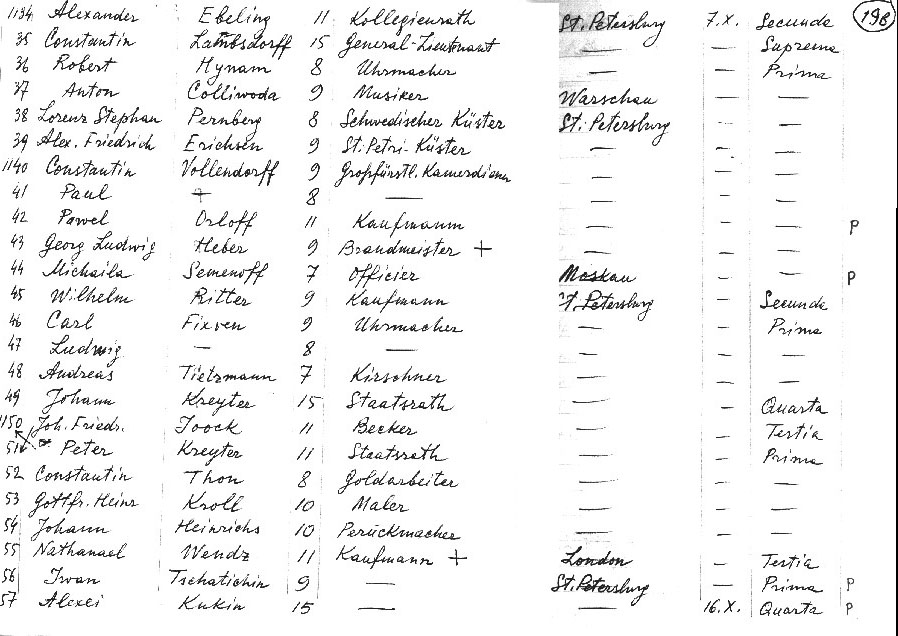 1134 Alexander Ebeling 11 Kollegienrath St. Petersburg 7.X. Secunda 198
35 Constantin Lambsdorff 15 General-Lieutenant — — Suprema
36 Robert Hynam 8 Uhrmacher — — Prima
37 Anton Colliwoda 9 Musiker Warschau — —
38 Lorenz Stephan Pernberg 8 Schwedischer Küster St. Petersburg — —
39 Alex. Friedrich Erichsen 9 St. Petri-Küster — — —
1140 Constantin Vollendorff 9 Großfürstl. Kamerdiener — — —
41 Paul + 8 — — — —
42 Pawel Orloff 11 Kaufmann — — — P
43 Georg Ludwig Heber 9 Brandmeister + — — —
44 Michaila Semenoff 7 Officier Moskau — — P
45 Wilhelm Ritter 9 Kaufmann St. Petersburg — Secunda
46 Carl Fixven 9 Uhrmacher — — Prima
47 Ludwig — 8 — — — —
48 Andreas Tietzmann 7 Kirschner — — —
49 Johann Kreyter 15 Staatsrath — — Quarta
1150 Joh. Friedr. Joock 11 Becker — — Tertia
51 Peter Kreyter 11 Staatsrath — — Prima
52 Constantin Thon 8 Goldarbeiter — — —
53 Gottfr. Heinr Kroll 10 Maler — — —
54 Johann Heinrichs 10 Perückmacher — — —
55 Nathanael Wendz 11 Kaufmann + London — Tertia
56 Iwan Tschatichin 9 — St. Petersburg — Prima P
57 Alexei Kukin 15 — — 16.X. Quarta P